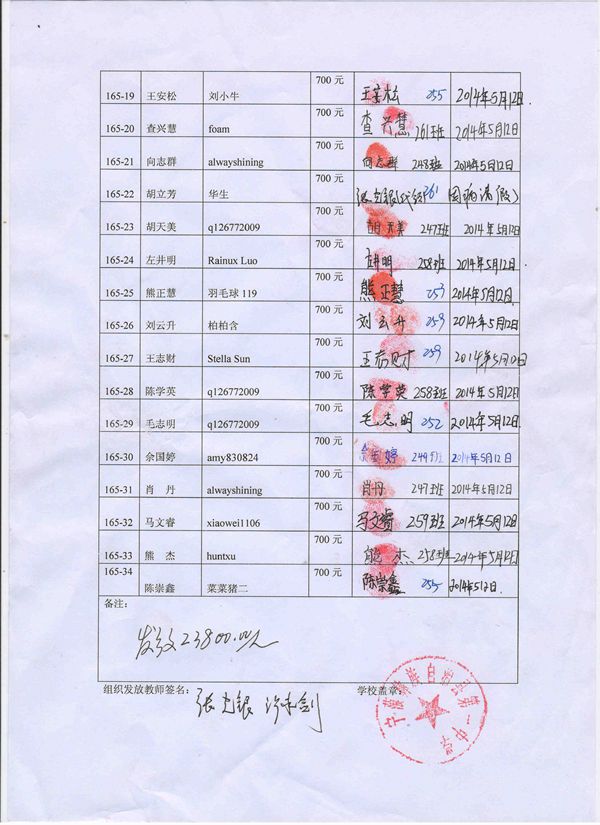 165-19 王安松 刘小牛 700 元 王安松 255 2014年5月12日.
165-20 查兴慧 foam 700 元 查兴慧 261班 2014年5月12日
165-21 向志群 alwayshining 700 元 向志群 248班 2014年5月12日
165-22 胡立芳 华生 700 元 261 因病请假)
165-23 胡天美 q126772009 700 元 胡天美 247班 2014年5月12日
165-24 左井明 Rainux Luo 700 元 左井明 258班 2014年5月12日
165-25 熊正慧 羽毛球 119 700 元 熊正慧 253 2014年5月12日
165-26 刘云升 柏柏含 700 元 刘云升 259 2014年5月12日
165-27 王志财 Stella Sun 700 元 王志财 259 2014年5月12日
165-28 陈学英 q126772009 700 元 陈学英 258班 2014年5月12日
165-29 毛志明 q126772009 700 元 毛志明 252 2014年5月12日
165-30 余国婷 amy830824 700 元 余国婷 249班 2014年5月12日
165-31 肖 丹 alwayshining 700 元 肖丹 247班 2014年5月12日
165-32 马文睿 xiaowei1106 700 元 马文睿 259班 2014年5月12日
165-33 熊 杰 huntxu 700 元 熊杰 258班 2014年5月12日
165-34 陈崇鑫 菜菜猪二 700 元 陈崇鑫 255 2014年5月12日
备注:
发放23800.00元
组织发放教师签名: 张 银 学校盖章:
自治县第一中学